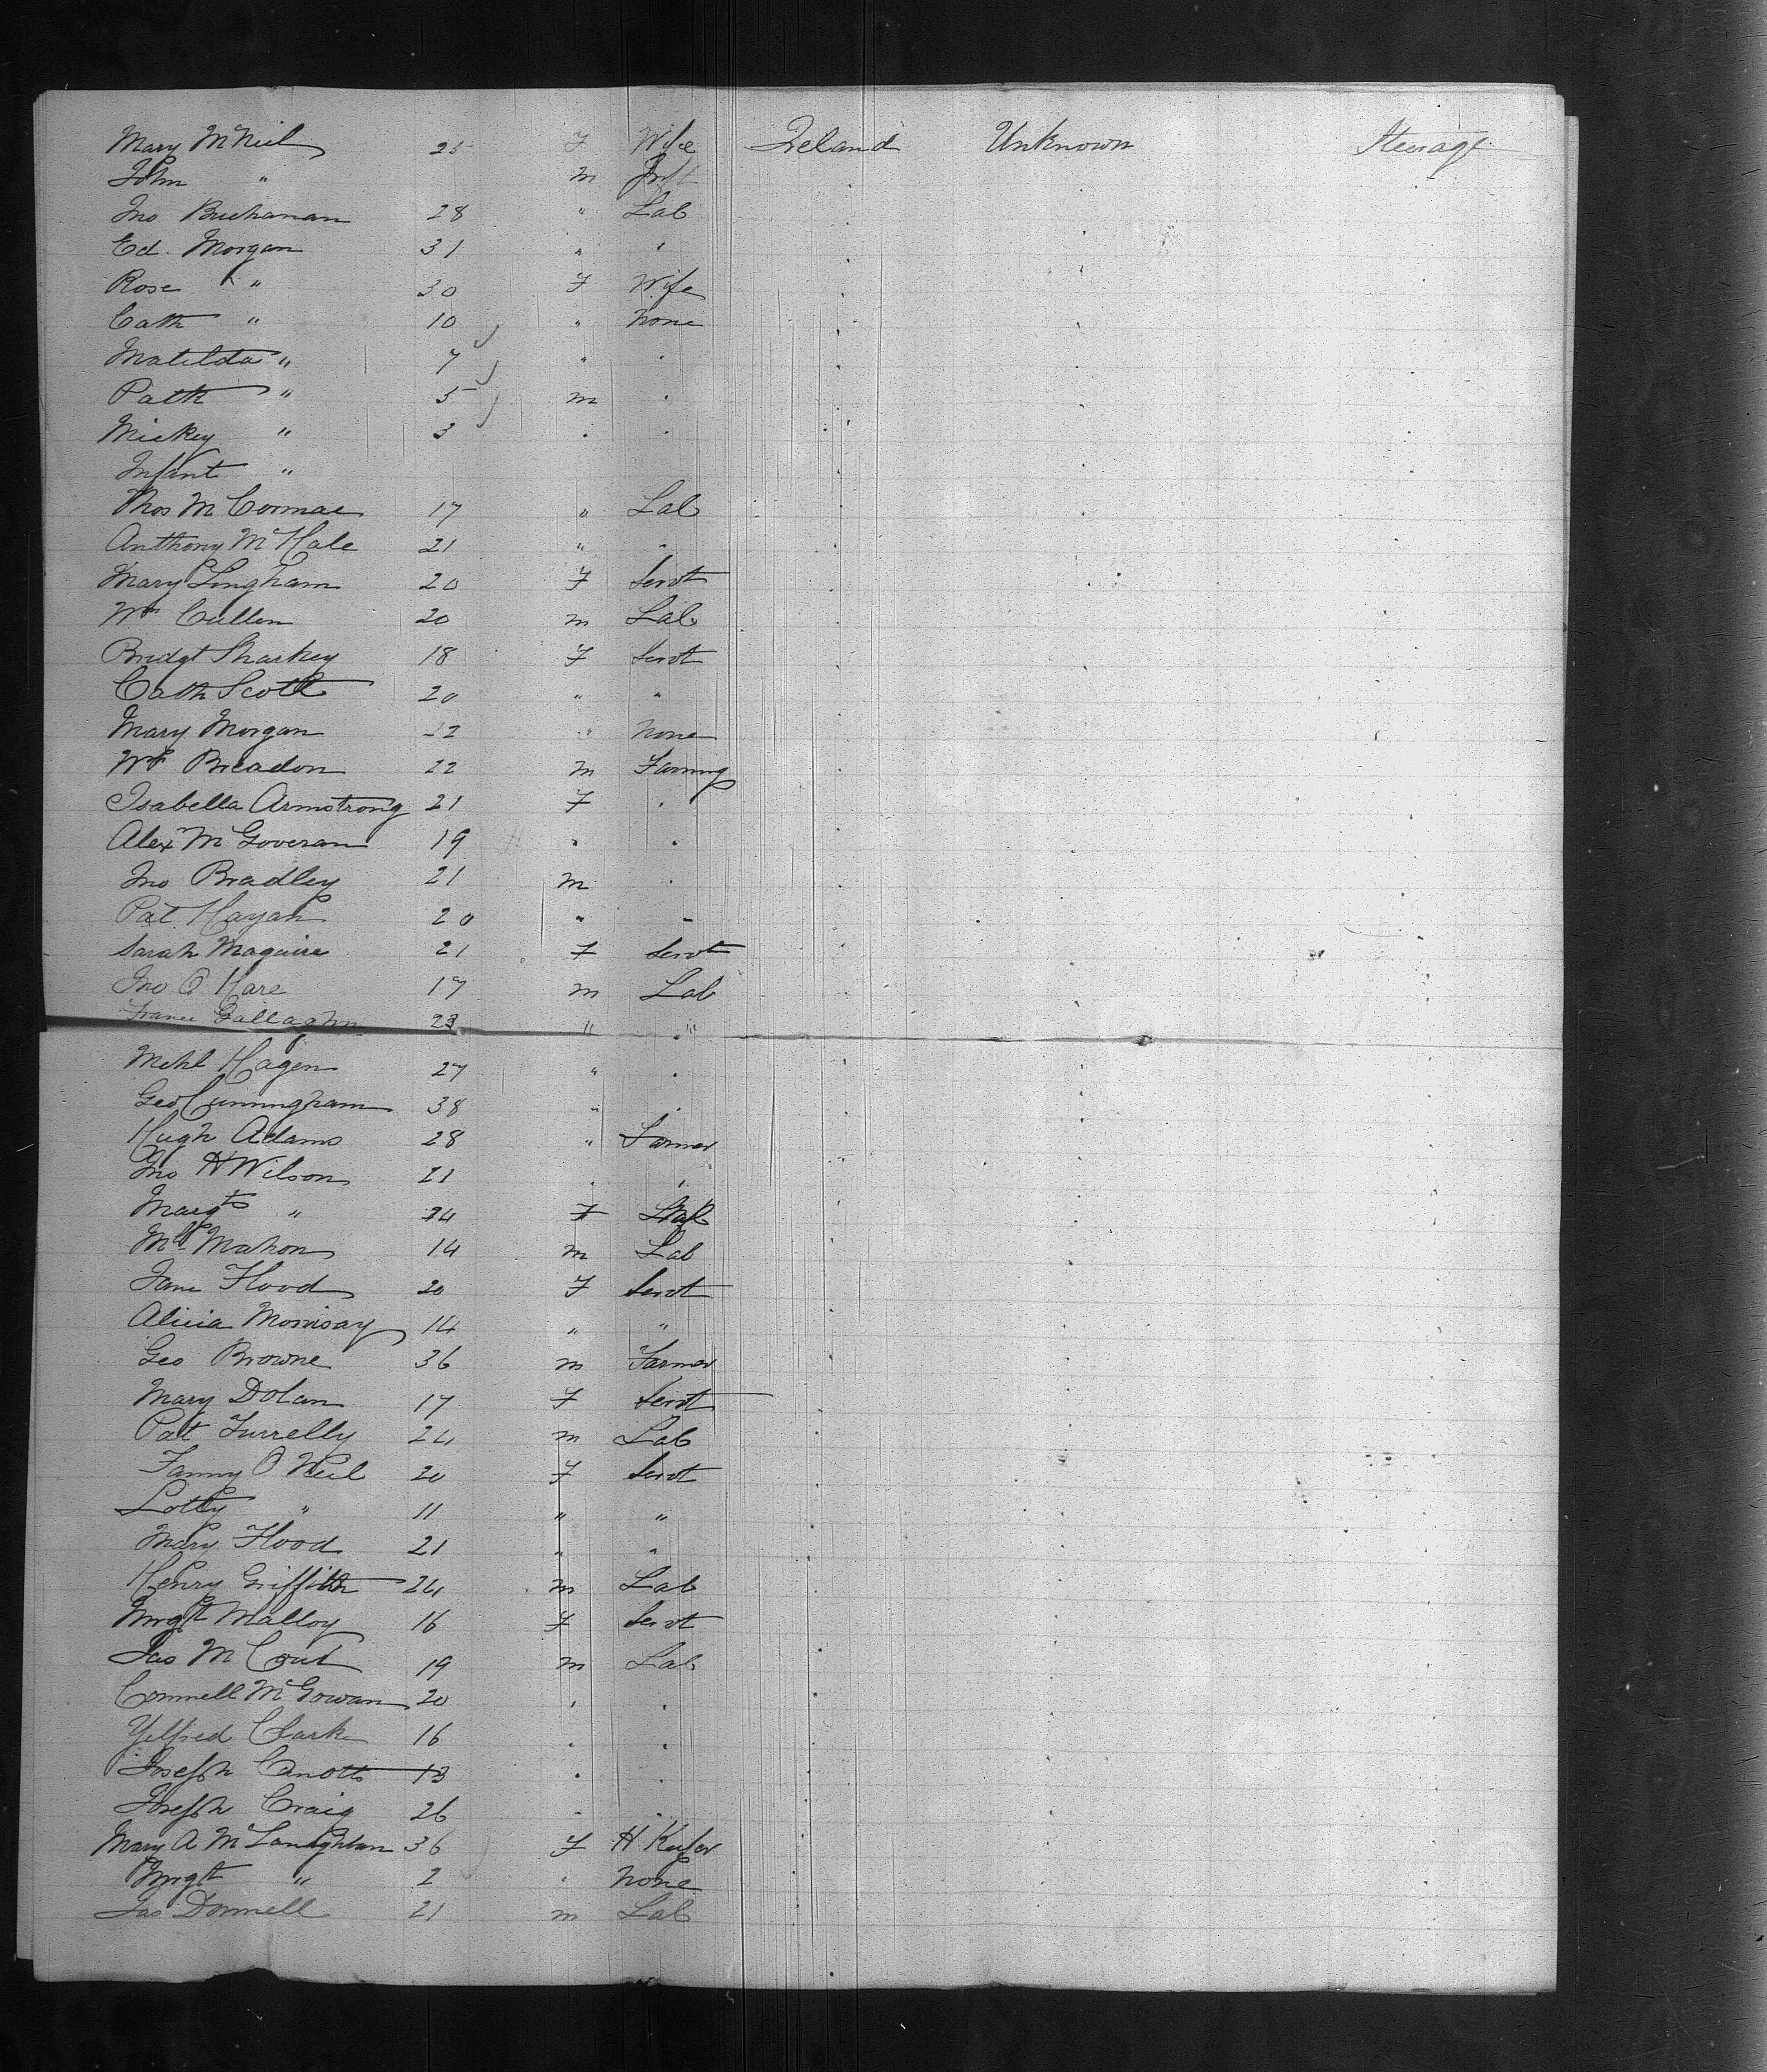 Mary McNeil 25 F Wife Ireland Unknown Steerage
John " m Inft
Jno Buchanan 28 " Lab
Ed. Morgan 31 " "
Rose " 30 F Wife
Cath " 10 " None
Matilda " 7 " "
Patk " 5 m "
Mickey " 3 " "
Infant "
Thos McCormac 17 " Lab
Anthony McHale 21 " "
Mary Lingham 20 F Servt
Wm Cullen 20 m Lab
Bridgt Sharkey 18 F Servt
Cath Scott 20 " "
Mary Morgan 22 " None
Wm Breadon 22 m Farming
Isabella Armstrong 21 F "
Alex McGoveran 19 " "
Jno Bradley 21 m "
Pat Hayah 20 " "
Sarah Maguire 21 F Servt
Jno O Hare 17 m Lab
Gallagher 23 " "
Mchl Hagen 27 " "
Geo Cunningham 38 " "
Hugh Adams 28 " Farmer
Jno H Wilson 21 " "
Margt " 24 F
Mahon 14 m Lab
Jane Flood 20 F Servt
Alicia Morrisay 14 " "
Geo Browne 36 m Farmer
Mary Dolan 17 F Servt
Pat Furrelly 24 m Lab
Fanny O Neil 20 F Servt
Lotty " 11 " "
Mary Flood 21 " "
Henry Griffith 24 m Lab
Mrgt Malloy 16 F Servt
Jas McCourt 19 m Lab
Connell McGowan 20 " "
Clarke 16 " "
Joseph 13 " "
Joseph Craig 26 " "
Mary A McLaughlan 36 F H Keeper
Mrgt " 2 " None
Jas Donnell 21 m Lab